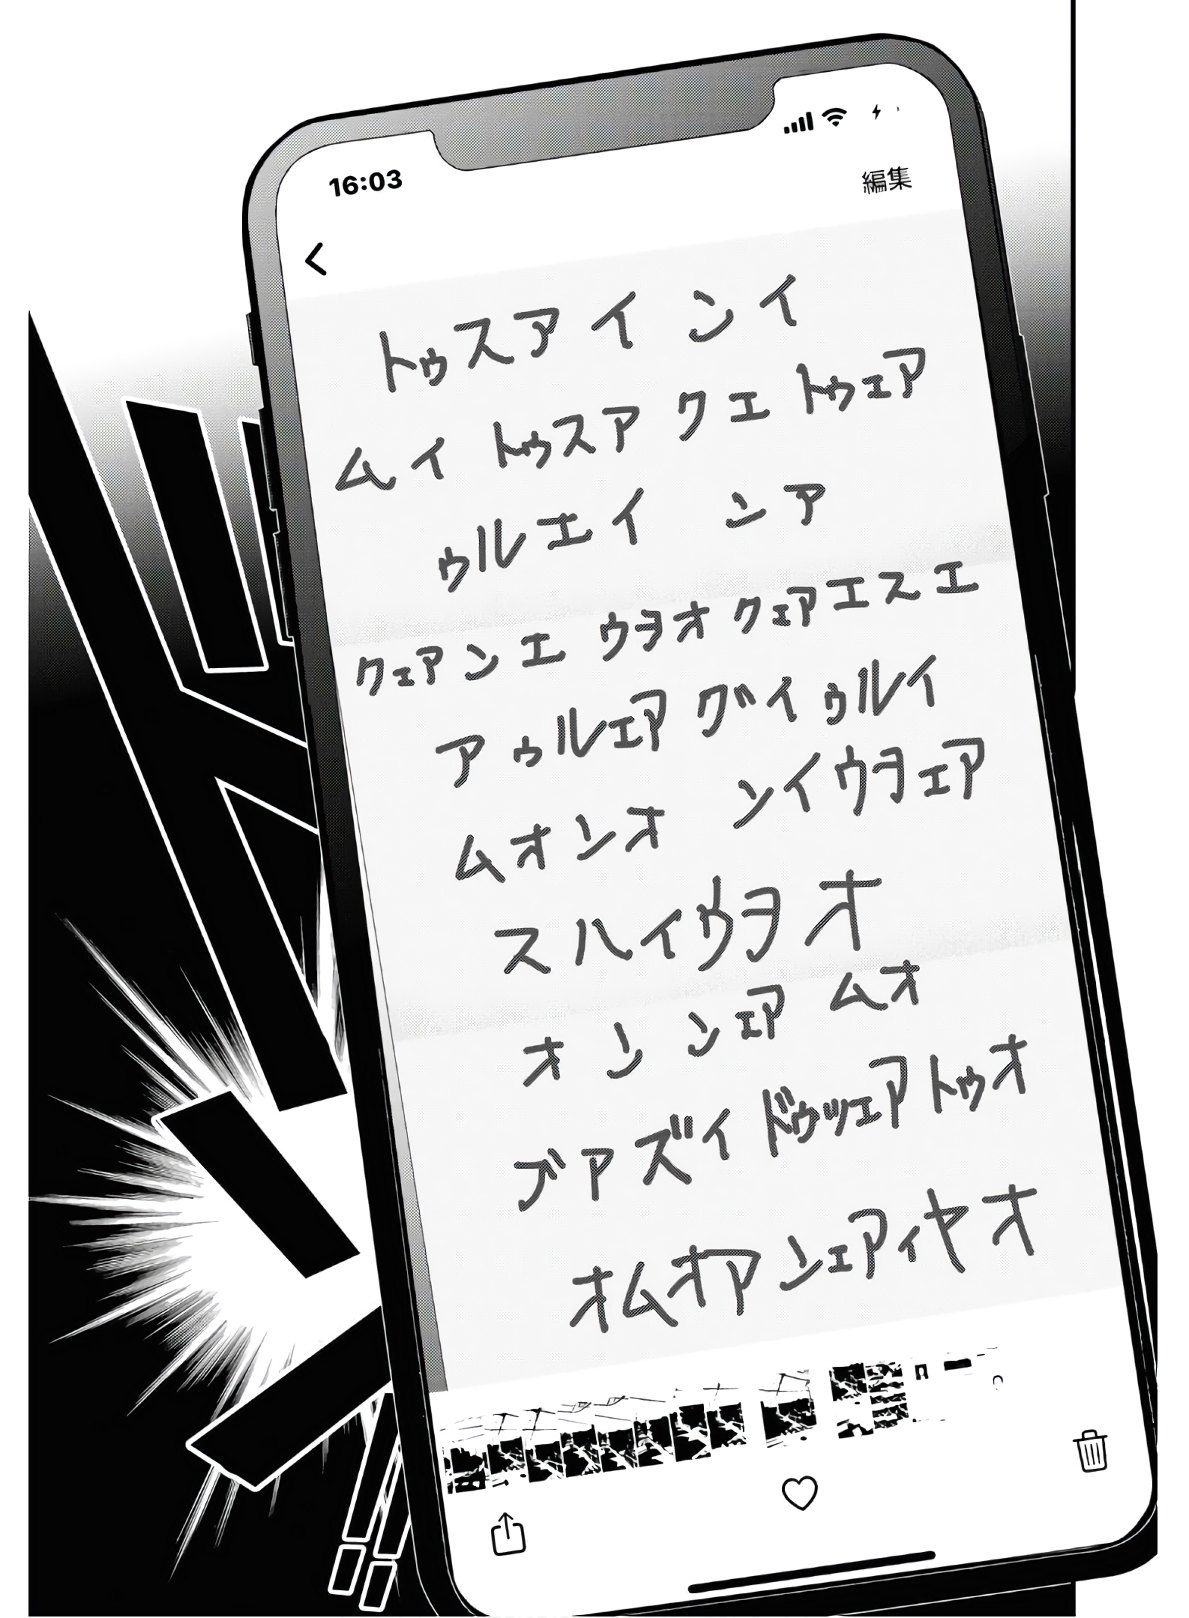 16:03
編集
トゥスアイ ンイ
ムイ トゥスア クエ トゥェア
ゥルエイ ンア
クェアンエ ウヲオ クェアエスエ
アゥルェア グイゥルイ
ムオンオ ンイウヲェア
スハイウヲオ
オンンェア ムオ
ブアズイ ドゥッェア トゥオ
オムオアンェアィヤオ